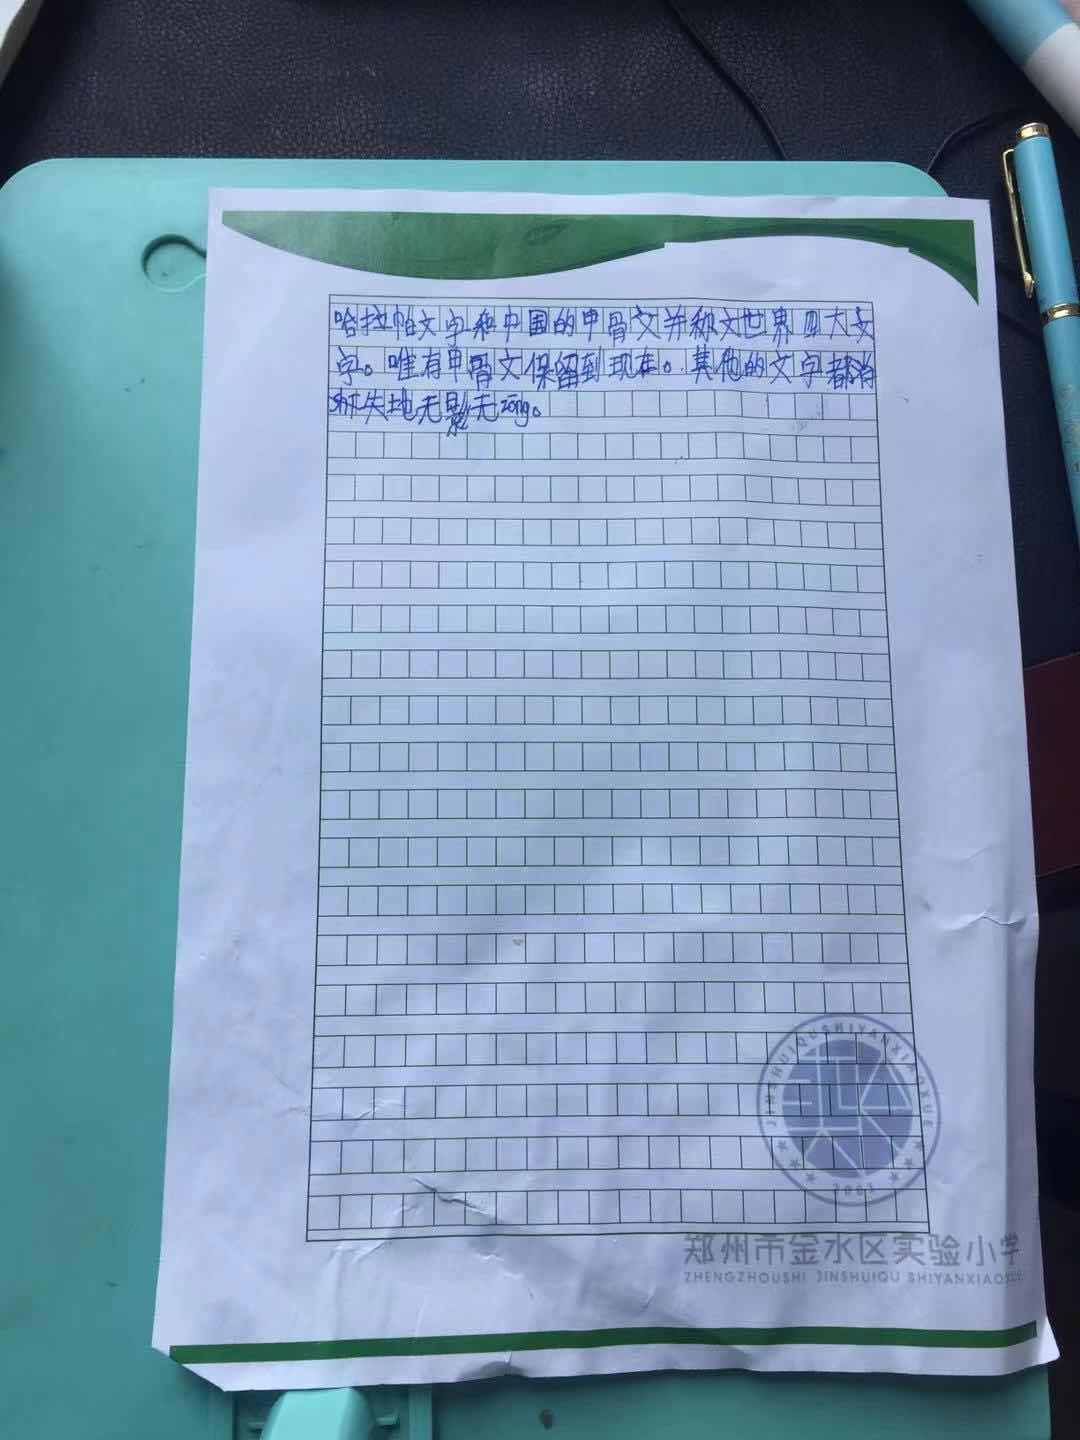 哈拉帕文字和中国的甲骨文并称文世界四大文
字。唯有甲骨文保留到现在。其他的文字都消
失地无影无zōng。
JINSHUIQUSHIYANXIAOXUE
2003
郑州市金水区实验小学
ZHENGZHOUSHI JINSHUIQU SHIYANXIAOXUE